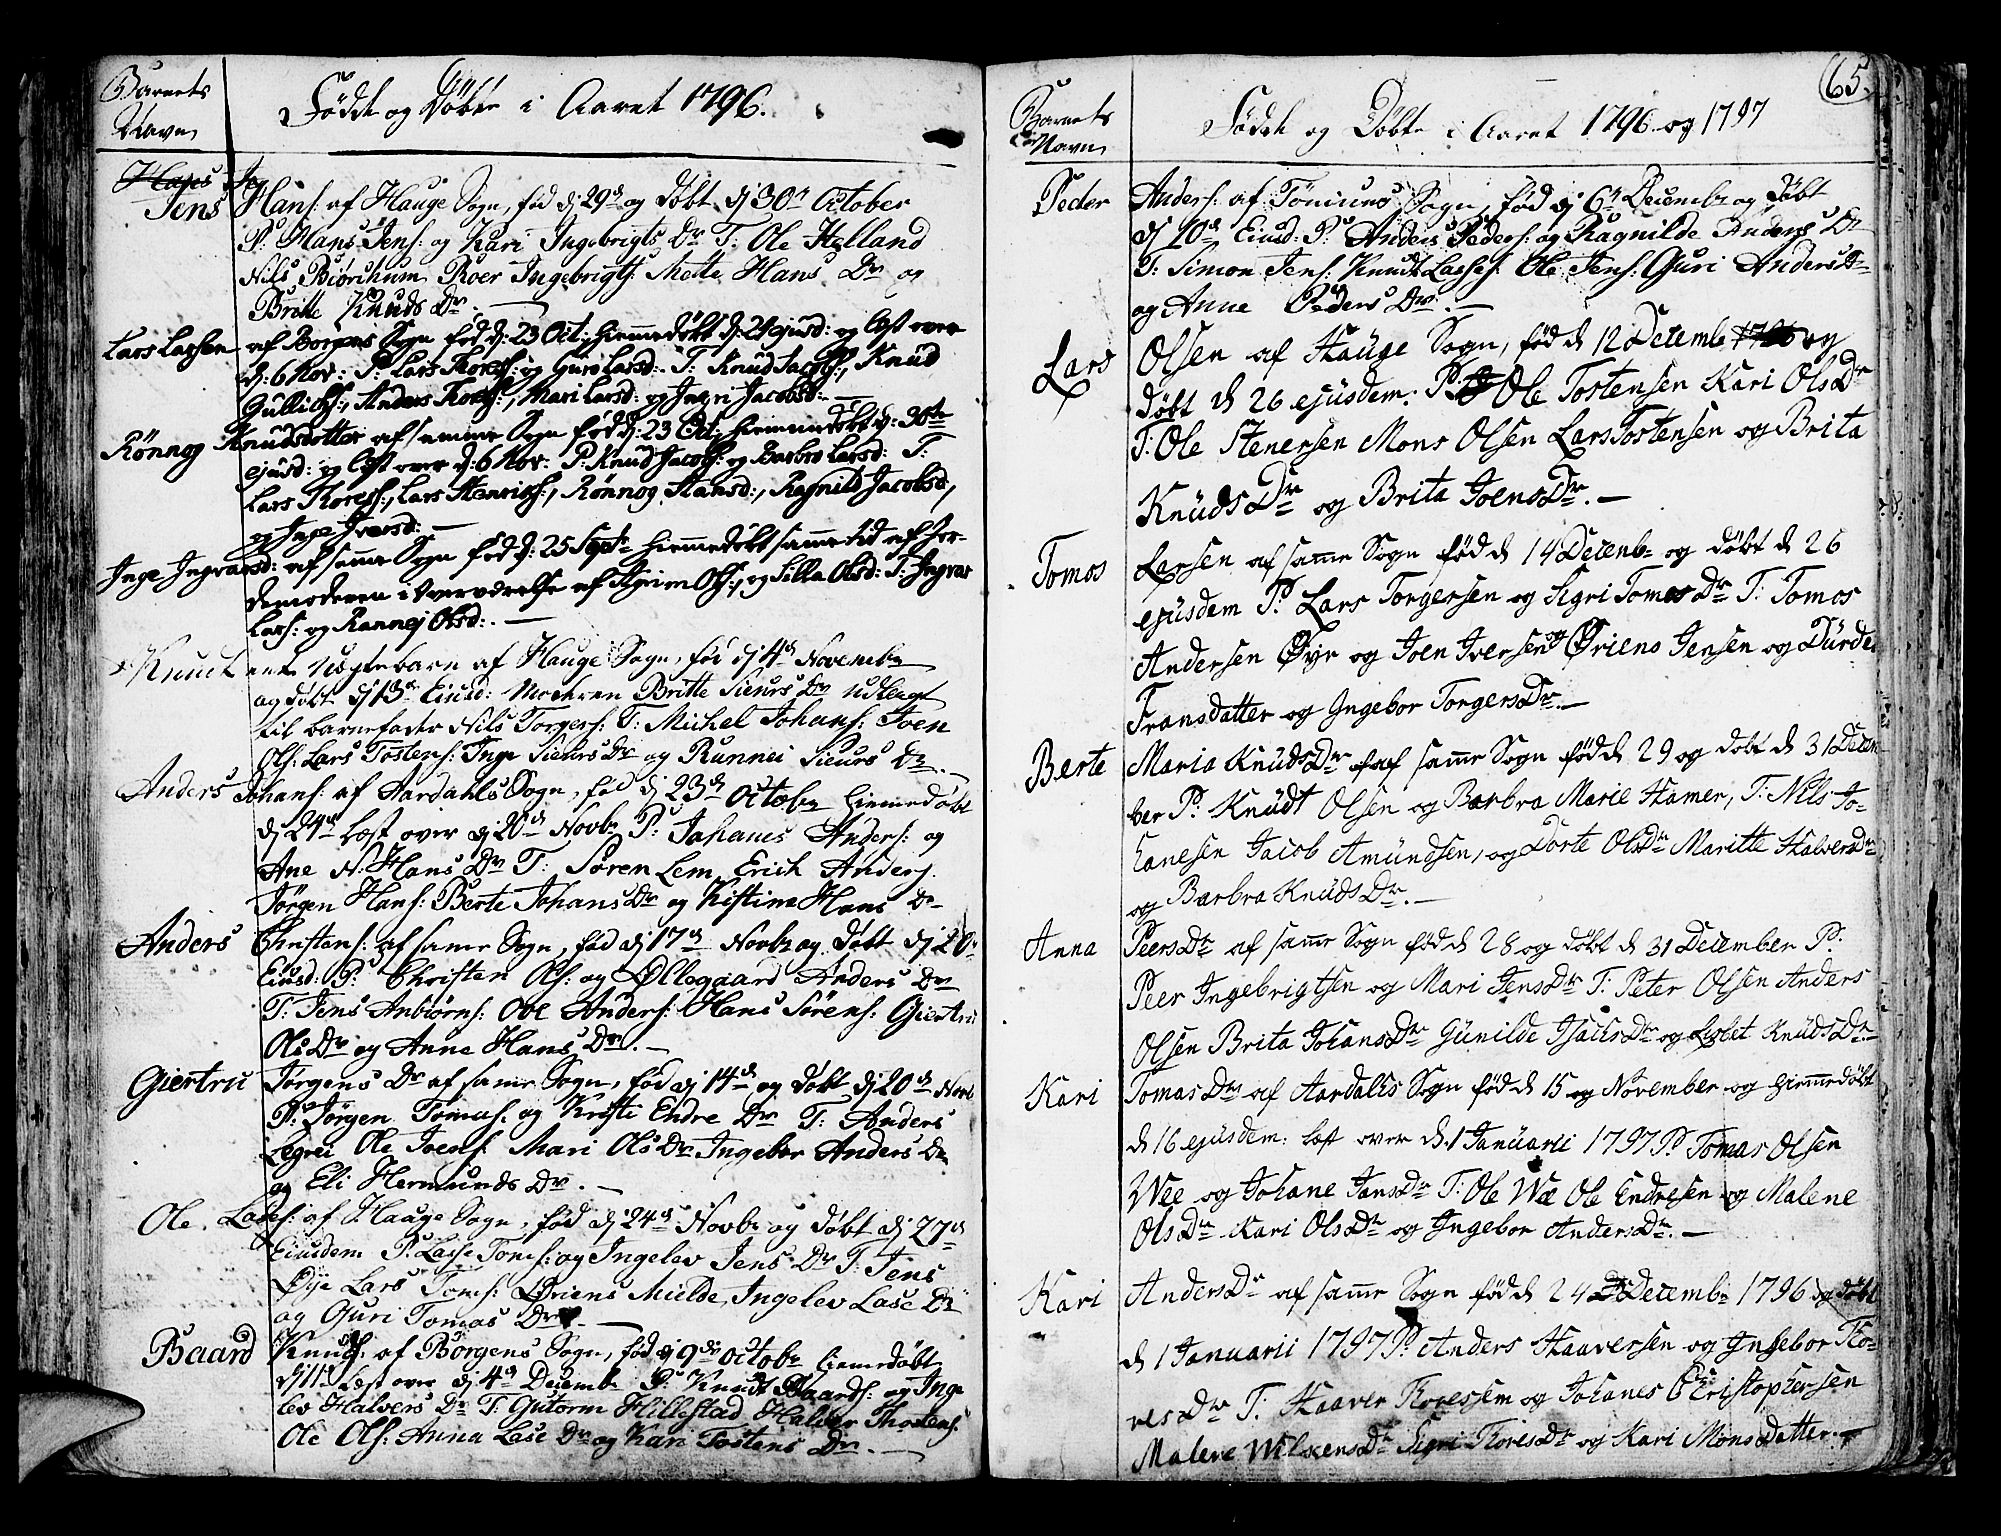 Barnets
Navn
Födde og Döbte i Aaret 1796.
Jens Hans: af Hauge Sogn, föd dj 29de og döbt dj 30te October
P: Hans Jens: og Kari Ingebrigts Dr T: Ole Helland
Nils Biörchum Roer Ingebrigts: Mette Hans Dr og
Britte Knuds Dr. —
Lars Larsen af Borgens Sogn föd d: 23 Oct: hiemmedöbt d: 24 ejusd: og læst over
d: 6 Nov: P: Lars Thores: og Guro Larsd: T: Knud Jacobs:, Knud
Gullichs:, Anders Thores:, Mari Larsd: og Ingri Jacobsd: —
Rönnog Knudsdotter af samme Sogn föd d: 23 Oct: hiemmedöbt d: 30te
ejusd: og læst over d: 6 Nov: P: Knud Jacobs: og Barbro Larsd: T:
Lars Thores:, Lars Henrichs:, Rönnog Hansd:, Ragnild Jacobsd,
og Inge Iversd: —
Inge Ingvarsd: af samme Sogn föd d: 25 Septr hiemmedöbt samme tid af Jor-
demoderen i overværelse af Ols:, og Silla Olsd: T: Ingvar
Lars: og Rannej Olsd: —
Knudt ent Uegte barn af Hauge Sogn, föd dj 4de Novembr
og döbt dj 13de Eiusd: Moderen Britte Siurs Dr udlagt
til barnefader Nils Torgers: T: Michel Johans: Joen
Ols: Lars Tostens: Inge Siurs Dr og Runnei Siurs Dr. —
Anders Johans: af Aardahls Sogn, föd dj 23de Octobr hiemedöbt
dj 24de læst over dj 20de Novbr P: Johanes Anders: og
Ane N: Hans Dr T: Sören Lem, Erich Anders:
Jörgen Hans: Berte Johans Dr og Kistina Hans Dr
Anders Christens: af same Sogn, föd dj 17de Novbr og döbt dj 20de
Eiusd: P: Christen Ols: og Öllegaard Anders Dr
T: Jens Anbiörns: Ove Anders: Hans Sörens: Giertru
Ols Dr og Anne Hans Dr. —
Giertru Jörgens Dr af same Sogn, föd dj 14de og döbt dj 20de Novb
P: Jörgen Tomas: og Kristi Endre Dr T: Anders
Legrei Ole Joens: Mari Ols Dr Ingebor Anders Dr
og Eli Hermunds Dr. —
Ole Lases: af Hauge Sogn, föd dj 24de Novbr og döbt dj 27de
Eiusdem P: Lasse Toms: og Ingelev Jens Dr T: Jens
Öye Lars Toms: Öriens Mielde, Ingelev Lase Dr
og Guri Tomas Dr. —
Baard Knuds: af Borgens Sogn, föd dj 9de Octobr hiemedöbt
dj 11te læst over dj 4de Decemb P: Knudt Baards: og Inge
lev Halvers Dr T: Gutorm Hillestad Halder Thostens:
Ole Ols: Anna Lase Dr og Kari Tostens Dr. —
65.
Barnets
Navn
Födde og Döbte i Aaret 1796 og 1797
Peder Anders: af Töniums Sogn, föd dj 6te Decembr og döbt
dj 10de Eiusd: P: Anders Peders: og Ragnilde Anders Dr
T: Simon Jens: Knudt Lasses: Ole Jens: Guri Anders Dr
og Anne Peders Dr. —
Lars Olsen af Hauge Sogn, föd d 12 Decemb og
döbt d 26 ejusdem. P: Ole Tostensen Kari Ols Dr
T: Ole Stenersen Mons Olsen Lars Tostensen og Brita
Knuds Dr og Brita Joens Dr. —
Tomos Larsen af samme Sogn föd d 14 Decemb og döbt d 26
ejusdem P: Lars Torgersen og Sigri Tomos Dr T: Tomos
Andersen Öye og Joen Iversen og Öriens Jensen og Durde
Fransdatter og Ingebor Torgers Dr. —
Berte Maria Knuds Dr af samme Sogn föd d 29 og döbt d 31 Decem
ber P: Knudt Olsen og Barbra Marie Hamer, T: Nils Jo-
hanesen Jacob Amundsen, og Dorte Ols Dr Maritte Halvers Dr
og Barbra Knuds Dr. —
Anna Peers Dr af samme Sogn föd d 28 og döbt d 31 December P:
Peer Ingebrigtsen og Mari Jens Dr T: Peter Olsen Anders
Olsen Brita Johans Dr Gunilde Isachs Dr og Lisbet Knuds Dr. —
Kari Tomas Dr af Aardalts Sogn föd d 15 og November og hiemmedöbt
d 16 ejusdem: læst over d. 1 Januarii 1797 P: Tomas Olsen
Wee og Johane Jans Dr T: Ole Wee Ole Endresen og Malene
Ols Dr Kari Ols Dr og Ingebor Anders Dr. —
Kari Anders Dr af samme Sogn föd d 24 Decembr 1796 og döbt
d 1 Januarii 1797 P: Anders Haaversen og Ingebor Tho-
res Dr T: Haaver Thoressem og Johanes Christophersen
Malene Dr Sigri Thores Dr og Kari Monsdatter. —